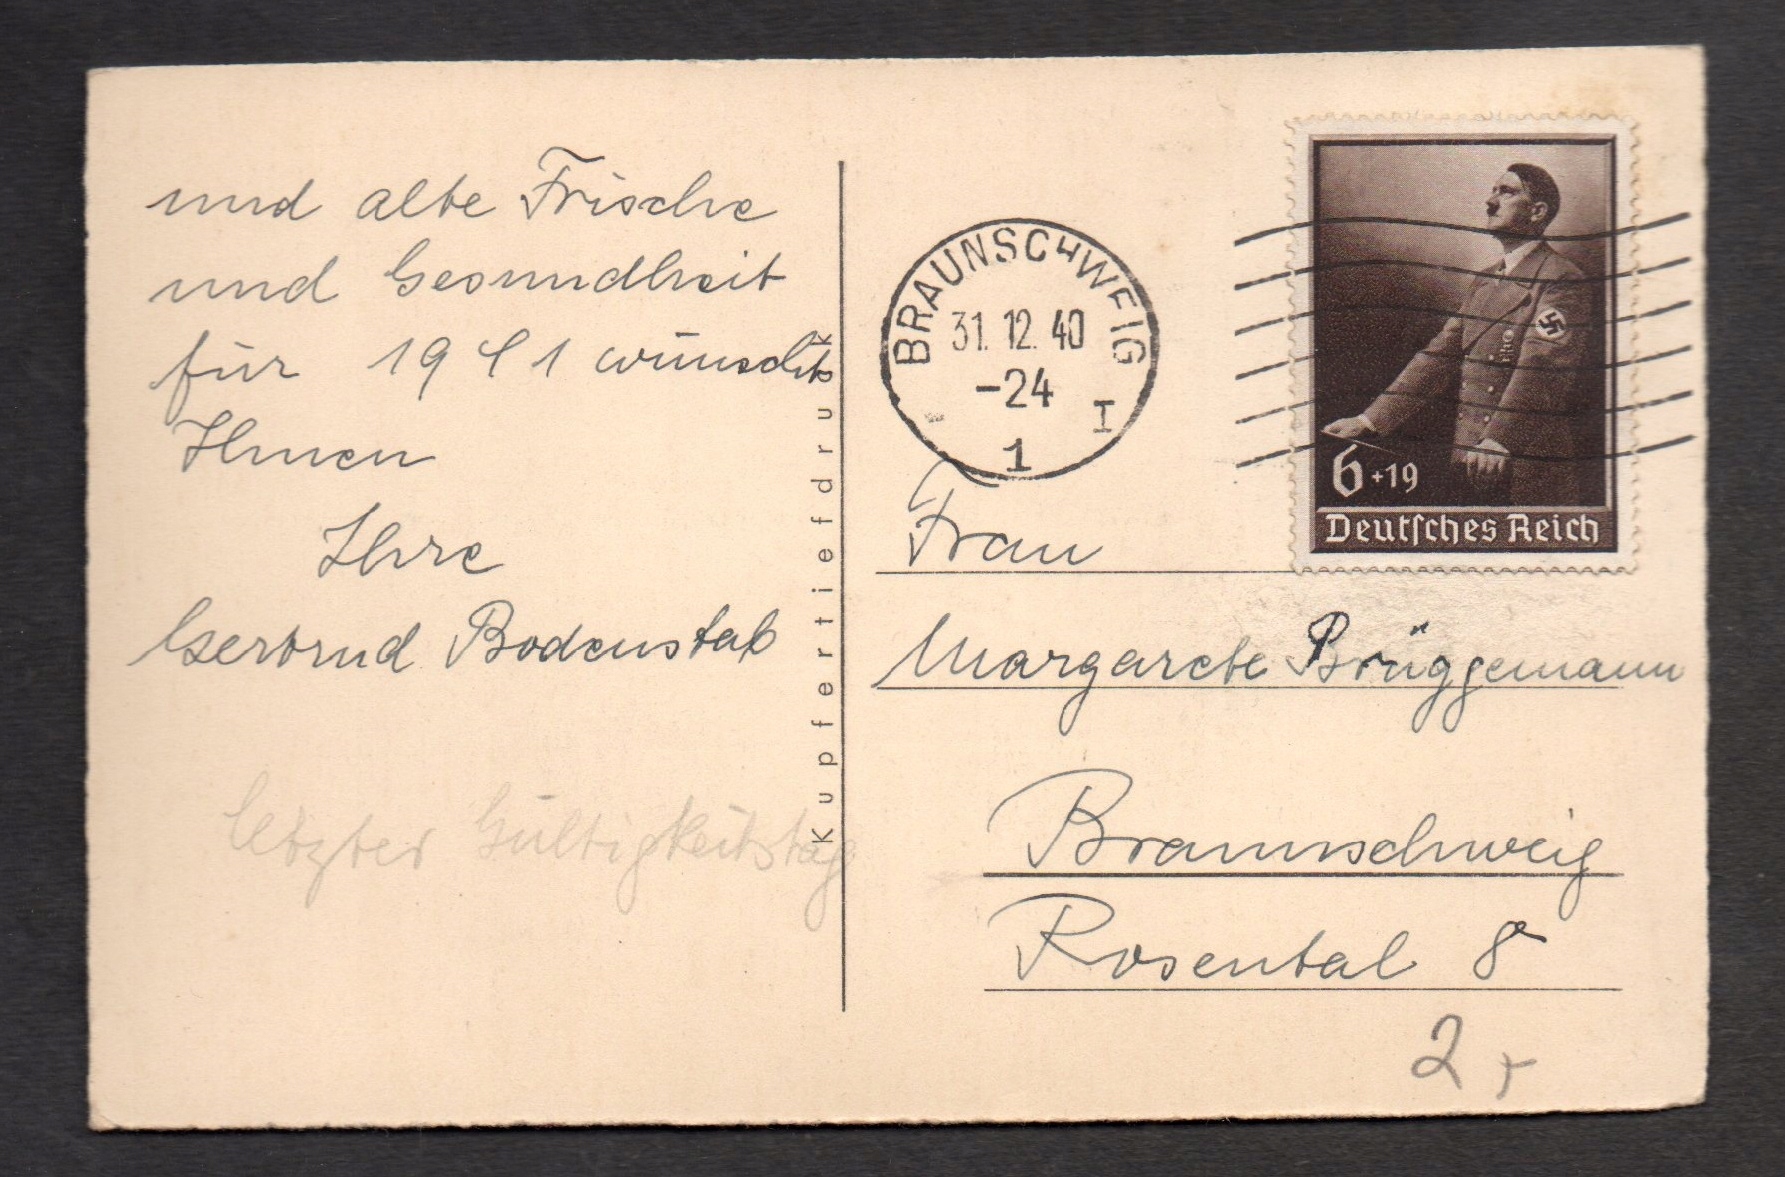 und alte Frische
und Gesundheit
für 1941 wünscht
Ihnen
Ihre
Gertrud Bodenstab
letzter Gültigkeitstag
Kupfertiefdruck
BRAUNSCHWEIG
31.12.40
-24
I
1
6+19
Deutsches Reich
Frau
Margarete Brüggemann
Braunschweig
Rosental 8
2,-